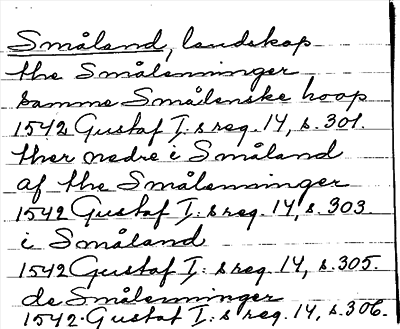 Småland, landskap
the Smålenninger
samme Smålenske hoop
1542 Gustaf I:s reg. 14, s. 301.
ther nedre i Småland
af the Smålenninger
1542 Gustaf I:s reg. 14, s. 303.
i Småland
1542 Gustaf I:s reg. 14, s. 305.
de Smålenninger
1542 Gustaf I:s reg. 14, s. 306.